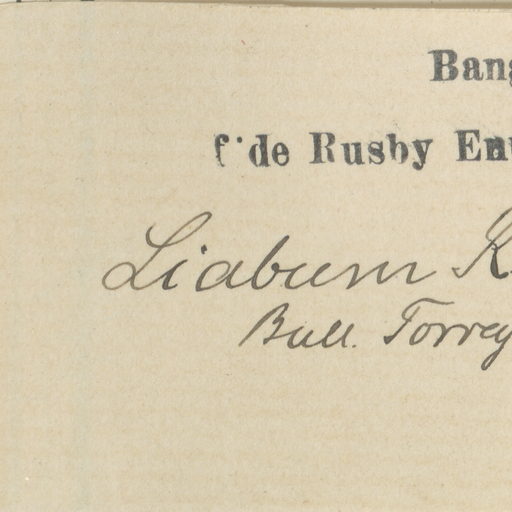 Bang
f de Rusby En
Liabum K
Bull. Torrey